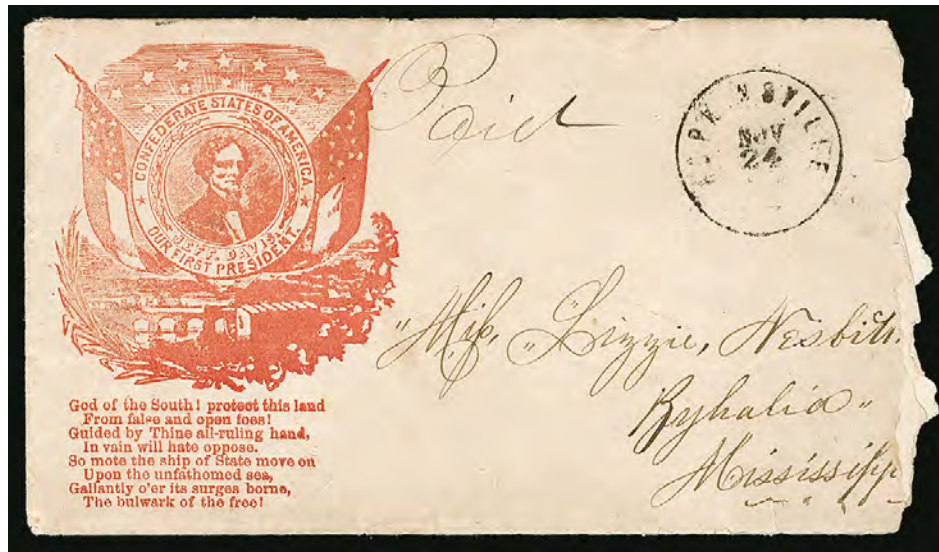 CONFEDERATE STATES OF AMERICA.
JEFF. DAVIS
OUR FIRST PRESIDENT.
God of the South! protect this land
From false and open foes!
Guided by Thine all-ruling hand,
In vain will hate oppose.
So mote the ship of State move on
Upon the unfathomed sea,
Gallantly o'er its surges borne,
The bulwark of the free!
Paid
HOPKINSVILLE
NOV
24
"Miss, "Lizzie, Nesbitt.
Byhalia"
Mississipp